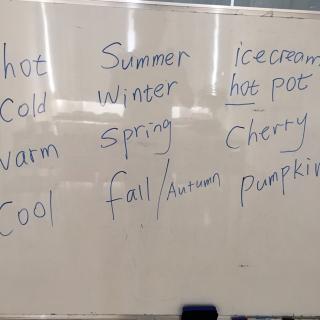 hot Summer icecream
Cold Winter hot pot
warm Spring Cherry
Cool fall/Autumn pumpkin